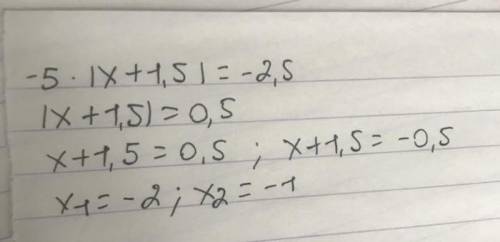 -5 · |x+1,5| = -2,5
|x+1,5| = 0,5
x+1,5 = 0,5 ; x+1,5 = -0,5
x1 = -2 ; x2 = -1